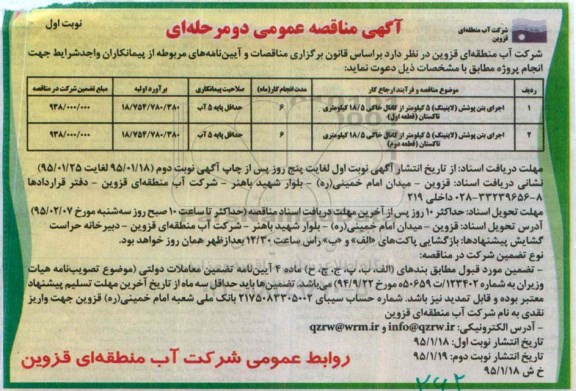 شرکت آب منطقه‌ای
قزوین
آگهی مناقصه عمومی دو مرحله‌ای
نوبت اول
شرکت آب منطقه‌ای قزوین در نظر دارد براساس قانون برگزاری مناقصات و آیین‌نامه‌های مربوطه از پیمانکاران واجدشرایط جهت
انجام پروژه مطابق با مشخصات ذیل دعوت نماید:
ردیف موضوع مناقصه و فرآیند ارجاع کار مدت انجام کار(ماه) صلاحیت پیمانکاری برآورد اولیه مبلغ تضمین شرکت در مناقصه
۱ اجرای بتن پوشش (لاینینگ) ۵ کیلومتر از کانال خاکی ۱۸/۵ کیلومتری تاکستان (قطعه اول) ۶ حداقل پایه ۵ آب ۱۸/۷۵۴/۷۸۰/۳۸۰ ۹۳۸/۰۰۰/۰۰۰
۲ اجرای بتن پوشش (لاینینگ) ۵ کیلومتر از کانال خاکی ۱۸/۵ کیلومتری تاکستان (قطعه دوم) ۶ حداقل پایه ۵ آب ۱۸/۷۵۴/۷۸۰/۳۸۰ ۹۳۸/۰۰۰/۰۰۰
مهلت دریافت اسناد: از تاریخ انتشار آگهی نوبت اول لغایت پنج روز پس از چاپ آگهی نوبت دوم (۹۵/۰۱/۱۸ لغایت ۹۵/۰۱/۲۵)
نشانی دریافت اسناد: قزوین - میدان امام خمینی(ره) - بلوار شهید باهنر - شرکت آب منطقه‌ای قزوین - دفتر قراردادها
۸-۳۳۲۳۹۶۵۶-۰۲۸ داخلی ۲۱۹
مهلت تحویل اسناد: حداکثر ۱۰ روز پس از آخرین مهلت دریافت اسناد مناقصه (حداکثر تا ساعت ۱۰ صبح روز سه‌شنبه مورخ ۹۵/۰۲/۰۷)
آدرس تحویل اسناد: قزوین - میدان امام خمینی(ره) - بلوار شهید باهنر - شرکت آب منطقه‌ای قزوین - دبیرخانه حراست
گشایش پیشنهادها: بازگشایی پاکت‌های «الف» و «ب» راس ساعت ۱۲/۳۰ بعدازظهر همان روز خواهد بود.
نوع تضمین شرکت در مناقصه:
- تضمین مورد قبول مطابق بندهای (الف، ب، پ، ج، چ، ح) ماده ۴ آیین‌نامه تضمین معاملات دولتی (موضوع تصویب‌نامه هیات
وزیران به شماره ۱۲۳۴۰۲/ت۵۰۶۵۹ه مورخ ۹۴/۹/۲۲) می‌باشد. تضمین‌ها باید حداقل سه ماه از تاریخ آخرین مهلت تسلیم پیشنهاد
معتبر بوده و قابل تمدید نیز باشد. شماره حساب سیبای ۲۱۷۵۰۸۳۳۰۵۰۰۲ بانک ملی شعبه امام خمینی(ره) قزوین جهت واریز
نقدی به نام شرکت آب منطقه‌ای قزوین
- آدرس الکترونیکی: info@qzrw.ir و qzrw@wrm.ir
تاریخ انتشار نوبت اول: ۹۵/۱/۱۸
تاریخ انتشار نوبت دوم: ۹۵/۱/۱۹
خ ش ۹۵/۱/۱۸
روابط عمومی شرکت آب منطقه‌ای قزوین